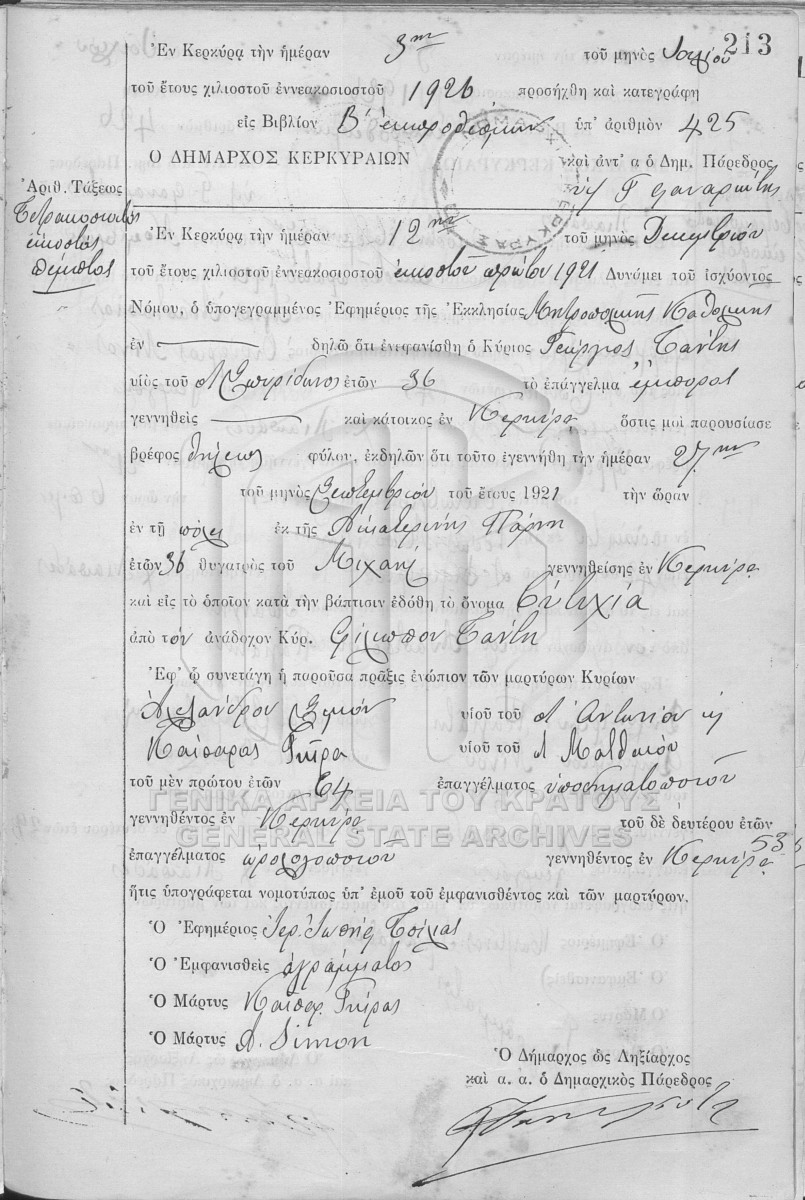 213
Ἐν Κερκύρᾳ τὴν ἡμέραν 3ην τοῦ μηνὸς Ἰουλίου
τοῦ ἔτους χιλιοστοῦ ἐννεακοσιοστοῦ 1926 προσήχθη καὶ κατεγράφη
εἰς Βιβλίον Β' ἐκπροθέσμων ὑπ' ἀριθμὸν 425
Ο ΔΗΜΑΡΧΟΣ ΚΕΡΚΥΡΑΙΩΝ καὶ ἀντ' α ὁ Δημ. Πάρεδρος
Ἀριθ. Τάξεως
Τετρακοσιοστὸς
εἰκοστὸς
πέμπτος
Ἐν Κερκύρᾳ τὴν ἡμέραν 12ην τοῦ μηνὸς Δεκεμβρίου
τοῦ ἔτους χιλιοστοῦ ἐννεακοσιοστοῦ εἰκοστοῦ πρώτου 1921 Δυνάμει τοῦ ἰσχύοντος
Νόμου, ὁ ὑπογεγραμμένος Ἐφημέριος τῆς Ἐκκλησίας Μητροπολιτικῆς Καθολικῆς
ἐν δηλῶ ὅτι ἐνεφανίσθη ὁ Κύριος Γεώργιος Τάντης
υἱὸς τοῦ Σπυρίδωνος ἐτῶν 36 τὸ ἐπάγγελμα ἔμπορος
γεννηθεὶς καὶ κάτοικος ἐν Κερκύρᾳ ὅστις μοὶ παρουσίασε
βρέφος θήλεος φύλου, ἐκδηλῶν ὅτι τοῦτο ἐγεννήθη τὴν ἡμέραν 27ην
τοῦ μηνὸς Σεπτεμβρίου τοῦ ἔτους 1921 τὴν ὥραν
ἐν τῇ πόλει ἐκ τῆς Αἰκατερίνης
ἐτῶν 36 θυγατρὸς τοῦ Μιχαὴλ γεννηθείσης ἐν Κερκύρᾳ
καὶ εἰς τὸ ὁποῖον κατὰ τὴν βάπτισιν ἐδόθη τὸ ὄνομα Εὐτυχία
ἀπὸ τὸν ἀνάδοχον Κύρ. Φίλιππον Τάντη
Ἐφ' ᾧ συνετάγη ἡ παροῦσα πρᾶξις ἐνώπιον τῶν μαρτύρων Κυρίων
Ἀλεξάνδρου Σιμὸν υἱοῦ τοῦ Ἀντωνίου κ
Καίσαρος Γκίρα υἱοῦ τοῦ Ματθαίου
τοῦ μὲν πρώτου ἐτῶν 64 ἐπαγγέλματος ὑποδηματοποιοῦ
ΓΕΝΙΚΑ ΑΡΧΕΙΑ ΤΟΥ ΚΡΑΤΟΥΣ
γεννηθέντος ἐν Κερκύρᾳ τοῦ δὲ δευτέρου ἐτῶν 53
GENERAL STATE ARCHIVES
ἐπαγγέλματος ὡρολογοποιοῦ γεννηθέντος ἐν Κερκύρᾳ
ἥτις ὑπογράφεται νομοτύπως ὑπ' ἐμοῦ τοῦ ἐμφανισθέντος καὶ τῶν μαρτύρων.
Ὁ Ἐφημέριος Ἱερ. Ἰωσὴφ
Ὁ Ἐμφανισθεὶς ἀγράμματος
Ὁ Μάρτυς Καῖσαρ Γκίρας
Ὁ Μάρτυς A. Simon
Ὁ Δήμαρχος ὡς Ληξίαρχος
καὶ α. α. ὁ Δημαρχικὸς Πάρεδρος